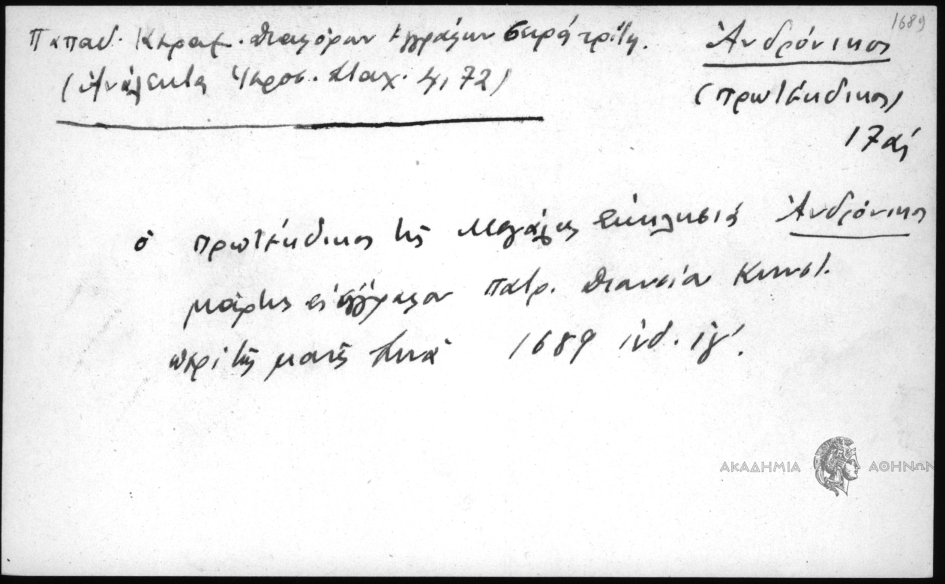 1689
Παπαδ. Κεραμ. Διαφόρων ἐγγράφων σειρά τρίτη.
(Ἀνάλεκτα Ἱεροσ. Σταχ. 4, 72)
Ἀνδρόνικος
(πρωτέκδικος)
17 αἰ
ὁ πρωτέκδικος τῆς Μεγάλης Ἐκκλησίας Ἀνδρόνικος
μάρτυς εἰς ἔγγραφον πατρ. Κωνστ.
περὶ τῆς μονῆς Σινᾶ 1689 ἰνδ. ιγ'.
ΑΚΑΔΗΜΙΑ ΑΘΗΝΩΝ